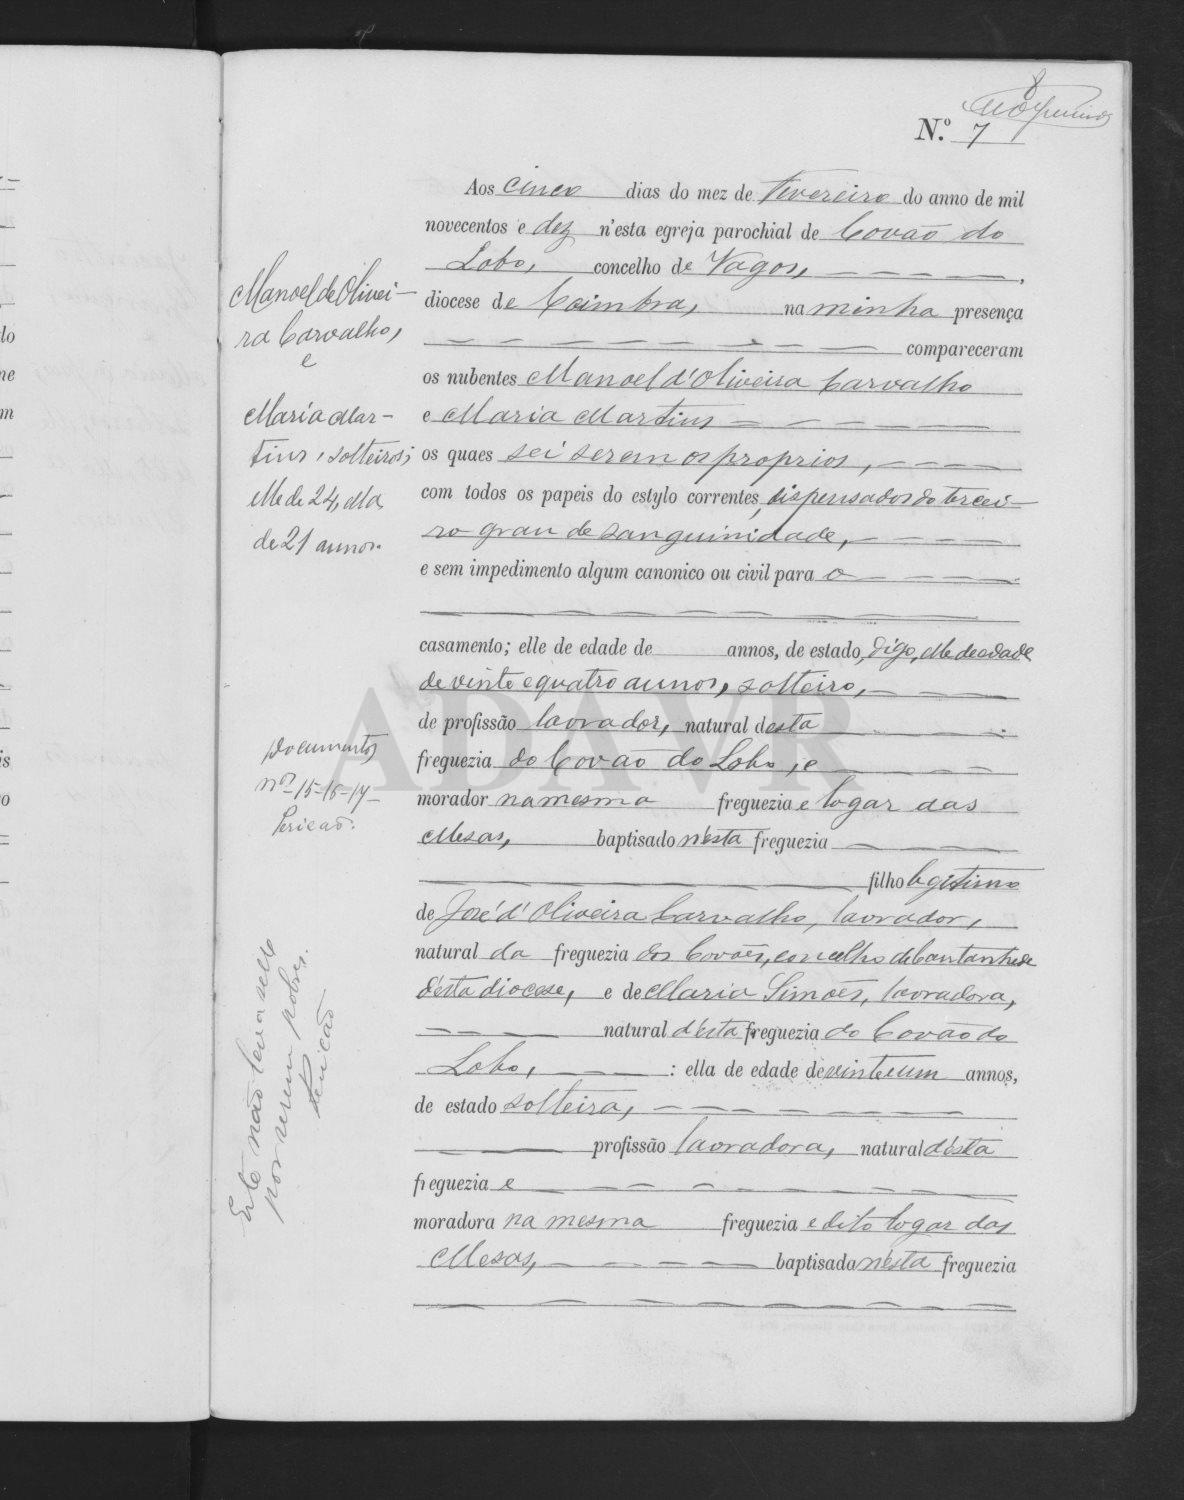 8
N.º 7
Aos cinco dias do mez de Fevereiro do anno de mil
novecentos e dez n'esta egreja parochial de Covão do
Lobo, concelho de Vagos,
diocese de Coimbra, na minha presença
compareceram
os nubentes Manoel d'Oliveira Carvalho
e Maria Martins
os quaes sei serem os proprios,
com todos os papeis do estylo correntes, dispensados do tercei-
ro grau de sanguinidade,
e sem impedimento algum canonico ou civil para o
casamento; elle de edade de annos, de estado, digo, elle de edade
de vinte e quatro annos, solteiro,
de profissão lavrador, natural desta
freguezia do Covão do Lobo, e
morador na mesma freguezia e logar das
Mesas, baptisado n'esta freguezia
filho legitimo
de José d'Oliveira Carvalho, lavrador,
natural da freguezia dos Covões, concelho de Cantanhede
d'esta diocese, e de Maria Simões, lavradora,
natural d'esta freguezia do Covão do
Lobo, : ella de edade de vinte e um annos,
de estado solteira,
profissão lavradora, natural d'esta
freguezia e
moradora na mesma freguezia e dito logar das
Mesas, baptisada n'esta freguezia
Manoel de Olivei-
ra Carvalho,
e
Maria Mar-
tins, solteiros;
elle de 24, ella
de 21 annos.
Documentos
nos 15-16-17-
Este não leva sello
por serem pobres.
ADAVR